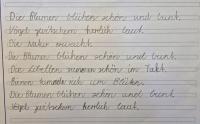 Die Blumen blühen schön und bunt.
Vögel zwitschern herrlich laut.
Die Natur erwacht.
Die Blumen blühen schön und bunt.
Die Libellen summen schön im Takt.
Bienen tummeln sich um Blüten.
Die Blumen blühen schön und bunt.
Vögel zwitschern herrlich laut.